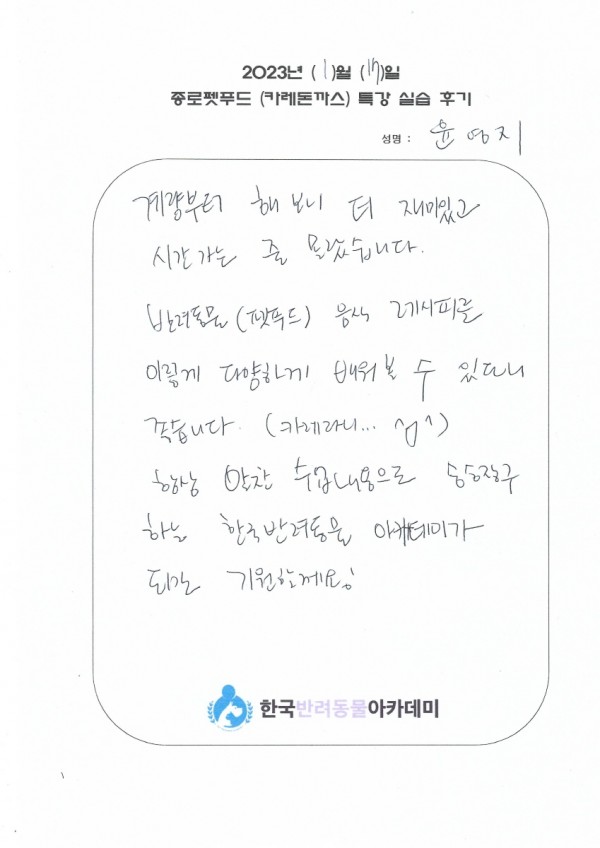 2023년 (1)월 (17)일
종로펫푸드 (카레돈까스) 특강 실습 후기
성명 : 윤영지
계량부터 해 보니 더 재미있고
시간 가는 줄 몰랐습니다.
반려동물(펫푸드) 음식 레시피를
이렇게 다양하게 배워볼 수 있다니
좋습니다. (카레라니... ^^)
항상 알찬 수업내용으로 승승장구
하는 한국반려동물 아카데미가
되길 기원할게요!
한국반려동물아카데미